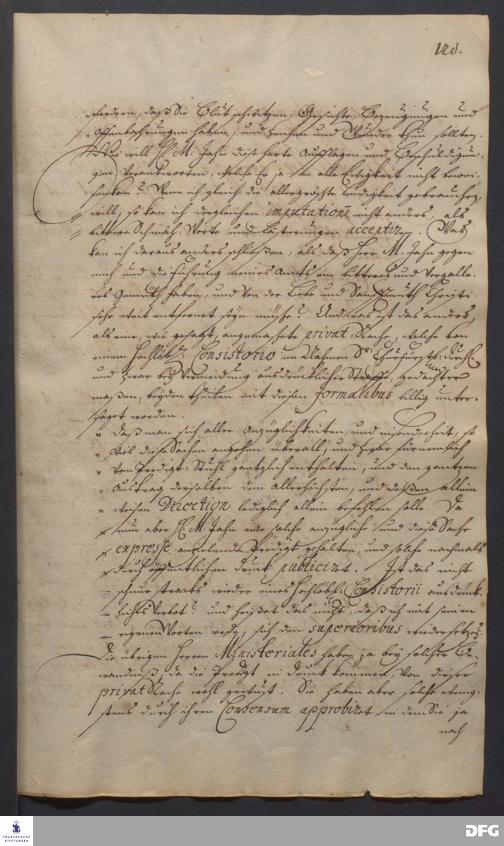 128.
fordern, daß Sie Blut schwitzen, Gesichte, Bezeugungen und
Offenbahrungen haben, und Zeichen und Wunder thun sollten.
Wie will H. M. Jahn diese harte Aufflagen und Beschuldigun-
gen verantworten, welche Er ja in alle Ewigkeit nicht bewei-
sen kan? Wenn ich gleich die allergrößte Lindigkeit gebrauchen
will, so kan ich dergleichen imputationes nicht anders, als
bittere Schmäh-Worte und Lästerungen acceptiren. Was
kan ich daraus anders schließen, als daß Herr M. Jahn gegen
mich und die Führung meines Amts ein bitteres und vergälle-
tes Gemüth haben, und von der Liebe und Sanfftmuth Christi
sehr weit entfernet seyn müße? Und was ist das anders,
als eine, wie gesagt, angemaßete privat Rache, welche von
einem Hochlöbl. Consistorio im Nahmen Sr. Churfürstl. Durchl.
und zwar bey Vermeidung ausdrücklicher Straffe, gedachter
maßen, beyden theilen mit diesen formalibus billig unter-
saget worden.
" daß man sich aller Anzüglichkeiten, und insonderheit, so
" viel diese Sachen angehen, überall, und zwar fürnemlich
" von Predigt-Stuhl gäntzlich enthalten, und den gantzen
" Austrag derselben dem Allerhöchsten, und deßen allein
" weisen Direction lediglich allein befehlen solle. Da
nun aber H. M. Jahn eine solche anzügliche und diese Sache
expresse Predigt gehalten, und solche nachmals
durch öffentlichen Druck publiciret. Ist das nicht
schnur stracks wieder eines Hochlöbl. Consistorii ausdrück-
liches Verbot? und heißet das nicht, daß ich mit seinen
eigenen Worten rede, sich den superioribus wiedersetzen?
Die übrigen Herren Ministeriales haben ja bey solcher Be-
wandnüß, da die Predigt in Druck kommen, von dieser
privat Rache wohl gewust. Sie haben aber solche wenig-
stens durch ihren Consensum approbiret, in dem Sie ja
noch
FRANCKESCHE
STIFTUNGEN
DFG